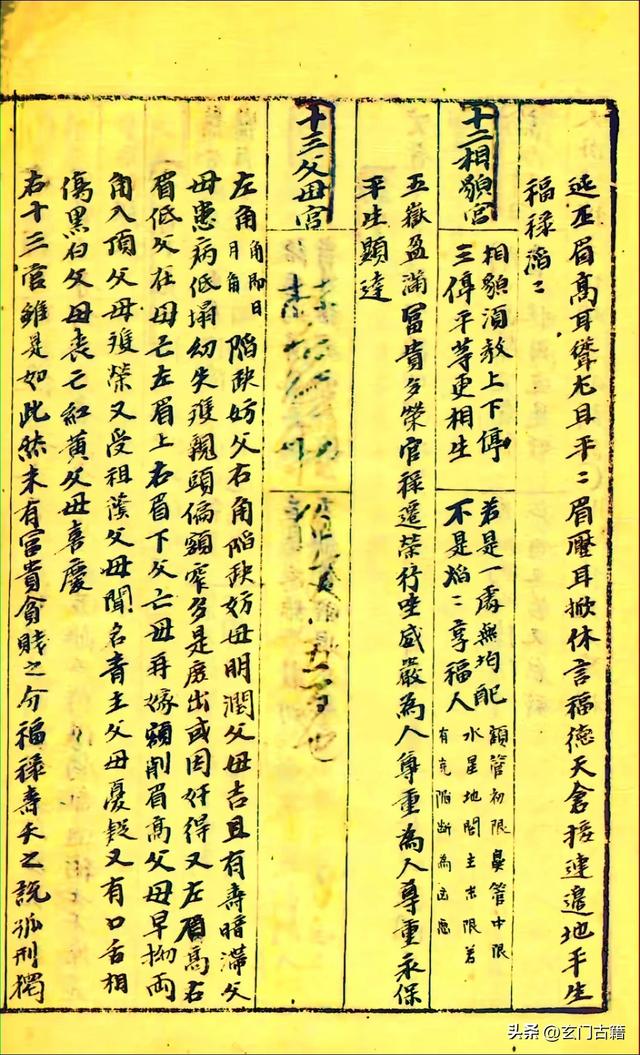 逃丕眉高耳聳尤且平二眉壓耳掀休言福德天倉接連邊地平生
福祿滔二
十二相貌宮
相貌須教上下停
三停平等更相生
若是一處無均配
不是焰二享福人
額管初限鼻管中限
水星地閣主末限若
有克陷斷為凶惡
五嶽盈滿富貴多榮官祿遷榮行坐威嚴為人尊重為人尊重永保
平生顯達
十三父母宮
左角角即日月角陷缺妨父右角陷缺妨母明潤父母吉且有壽暗滯父
母患病低塌幼失雙親頭偏額窄多是庶出或因奸得又左眉高右
眉低父在母亡左眉上右眉下父亡母再嫁額削眉高父母早拗兩
角入頂父母雙榮又受祖蔭父母聞名青主父母憂疑又有口舌相
傷黑白父母喪亡紅黃父母喜慶
右十三宮雖是如此然未有富貴貧賤之分福祿壽夭之說孤刑獨
头条 @玄门古籍